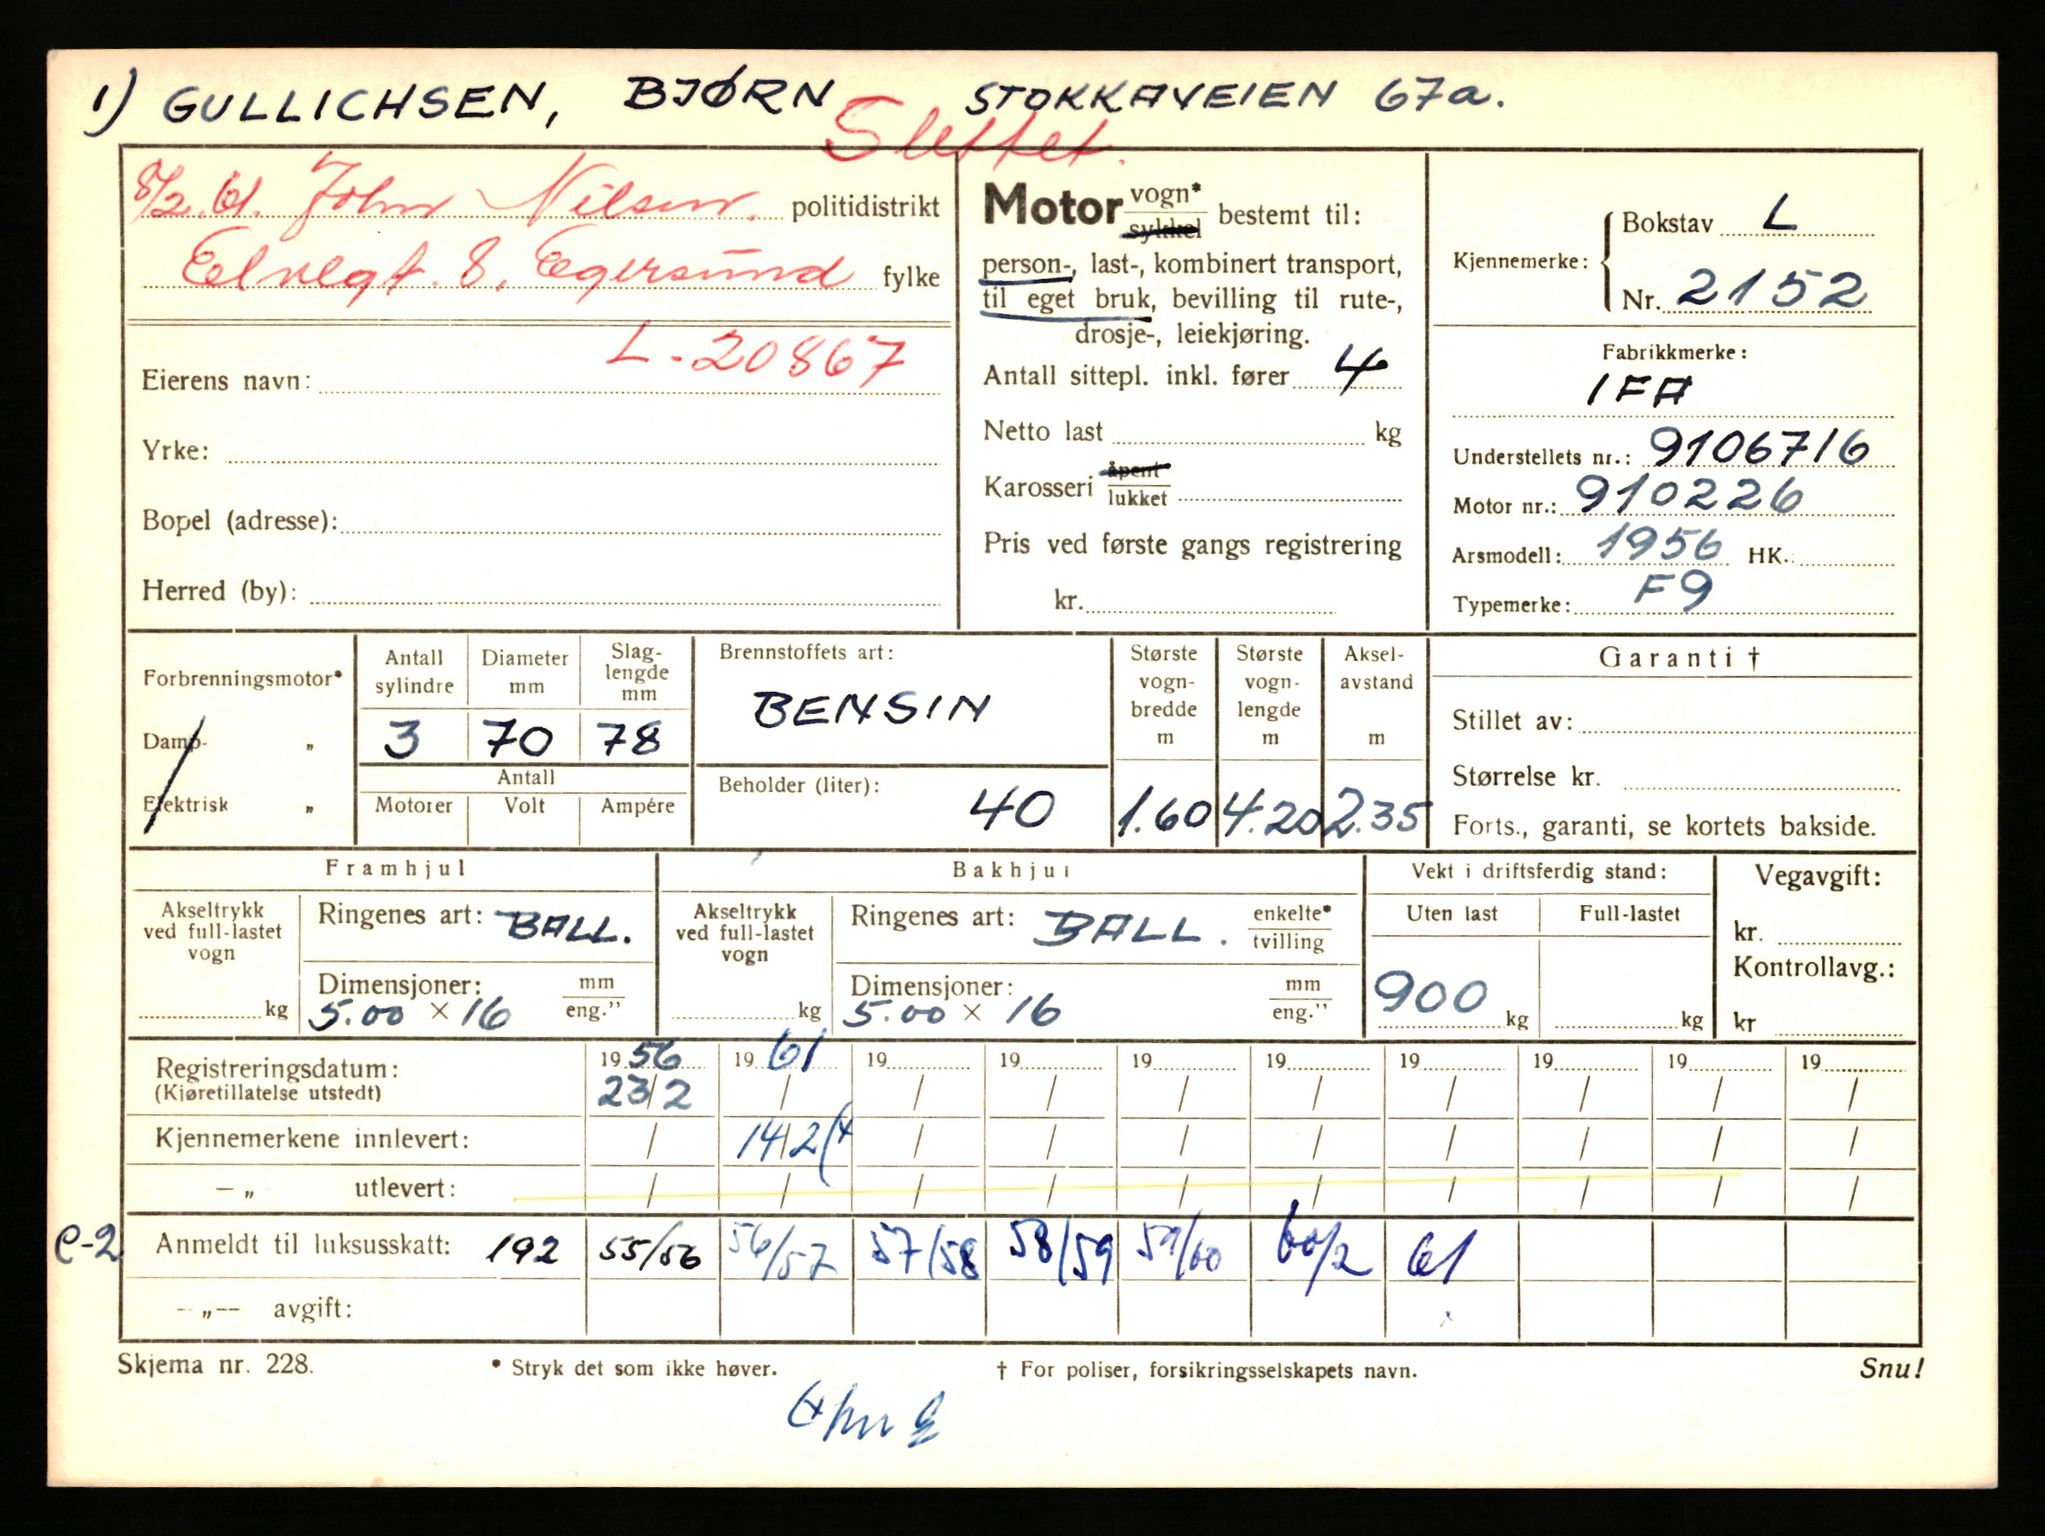 1) GULLICHSEN, BJØRN STOKKAVEIEN 67a.
Slettet.
8/2.61. John Nilsen. politidistrikt
Elvegt. 8, Egersund fylke
L-20867
Eierens navn:
Yrke:
Bopel (adresse):
Herred (by):
Motor vogn* sykkel bestemt til:
person-, last-, kombinert transport,
til eget bruk, bevilling til rute-,
drosje-, leiekjøring.
Antall sittepl. inkl. fører 4
Netto last kg
Karosseri åpent lukket
Pris ved første gangs registrering
kr.
Kjennemerke: Bokstav L
Nr. 2152
Fabrikkmerke:
IFA
Understellets nr.: 9106716
Motor nr.: 910226
Arsmodell: 1956 HK.:
Typemerke: F9
Forbrenningsmotor*
Damp- „
Elektrisk „
Antall sylindre 3
Diameter mm 70
Slaglengde mm 78
Antall
Motorer Volt Ampére
Brennstoffets art:
BENSIN
Beholder (liter):
40
Største vogn-bredde m 1.60
Største vogn-lengde m 4.20
Aksel-avstand m 2.35
Garanti †
Stillet av:
Størrelse kr.
Forts., garanti, se kortets bakside.
Framhjul
Akseltrykk ved full-lastet vogn kg
Ringenes art: BALL.
Dimensjoner: mm eng."
5.00 × 16
Bakhjul
Akseltrykk ved full-lastet vogn kg
Ringenes art: BALL. enkelte* tvilling
Dimensjoner: mm eng."
5.00 × 16
Vekt i driftsferdig stand:
Uten last Full-lastet
900 kg kg
Vegavgift:
kr.
Kontrollavg.:
kr
Registreringsdatum: 1956 1961 19 19 19 19 19 19 19 19
(Kjøretillatelse utstedt) 23/2 / / / / / / / / /
Kjennemerkene innlevert: / 14/2 (x / / / / / / / /
— „ utlevert: / / / / / / / / / /
e-2 Anmeldt til luksusskatt: 192 55/56 56/57 57/58 58/59 59/60 60/2 61
— „ — avgift:
Skjema nr. 228. * Stryk det som ikke høver. † For poliser, forsikringsselskapets navn. Snu!